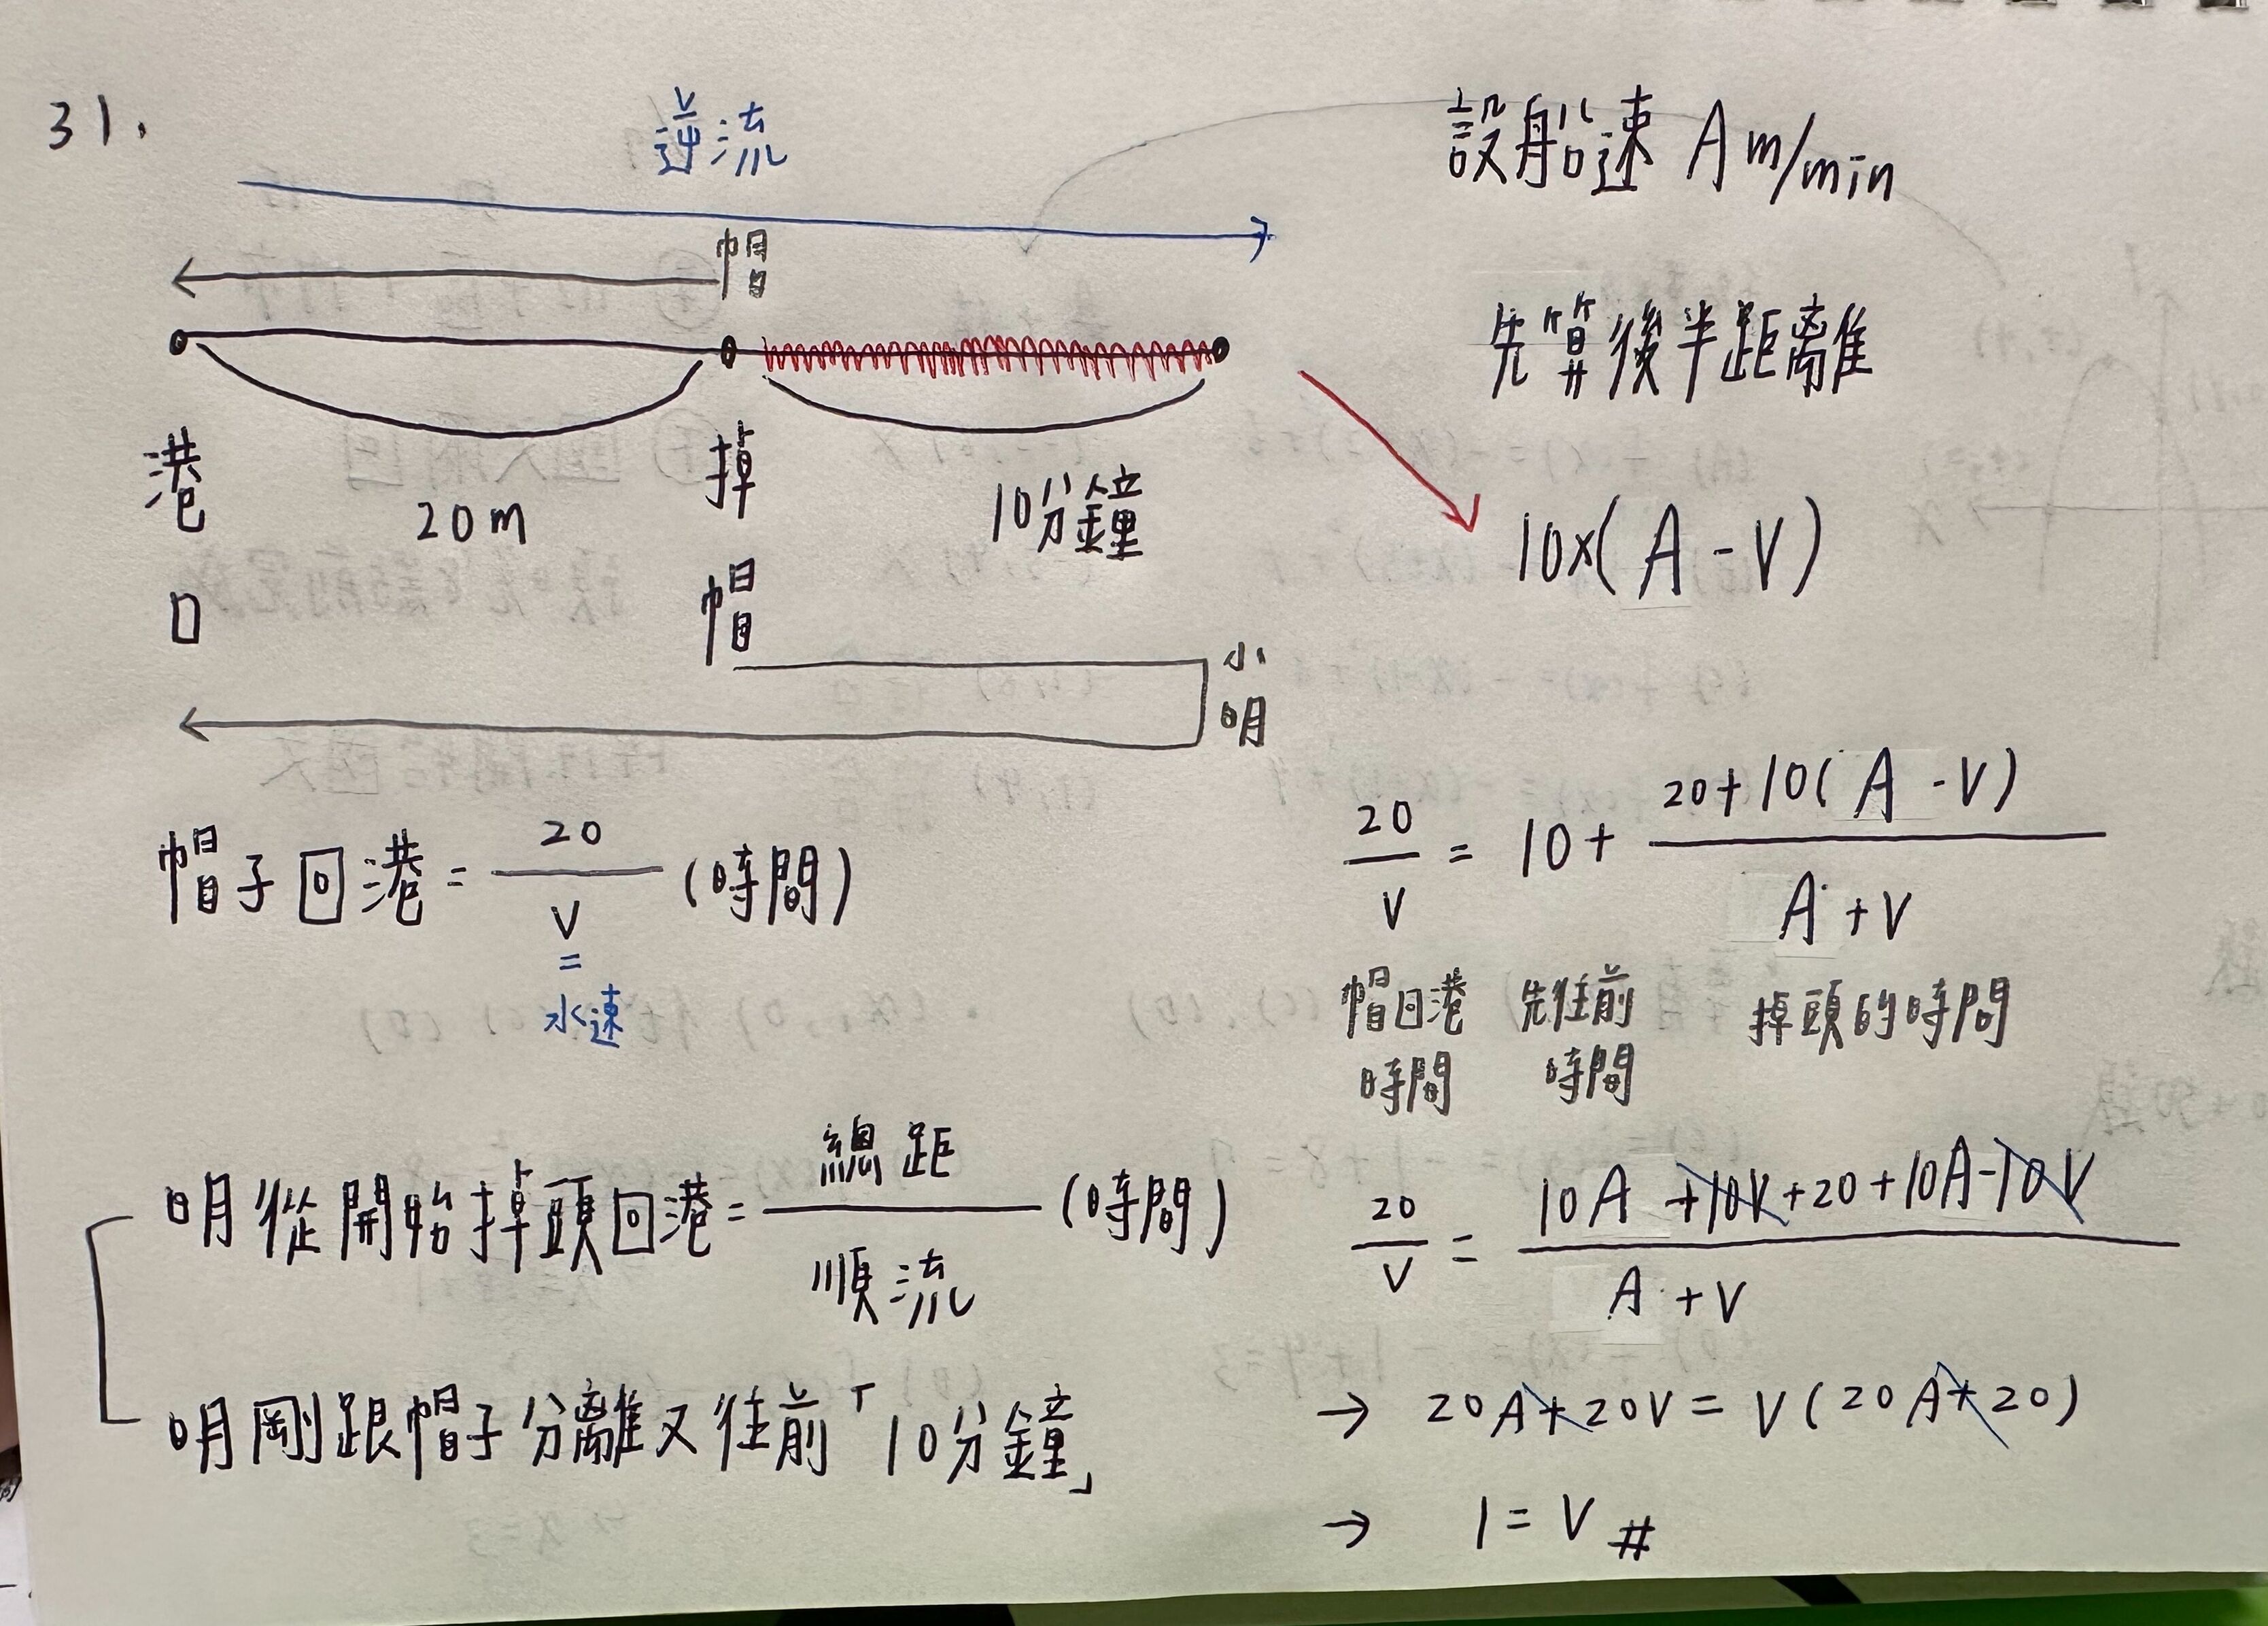 31.
逆流
帽
港口
20m
掉帽
10分鐘
小明
帽子回港 = 20/V (時間)
=
水速
明從開始掉頭回港 = 總距/順流 (時間)
明剛跟帽子分離又往前「10分鐘」
設船速 A m/min
先算後半距離
10×(A-V)
20/V = 10 + 20+10(A-V)/A+V
帽回港時間
先往前時間
掉頭的時間
20/V = 10A+10V+20+10A-10V/A+V
→ 20A+20V = V(20A+20)
→ 1 = V #